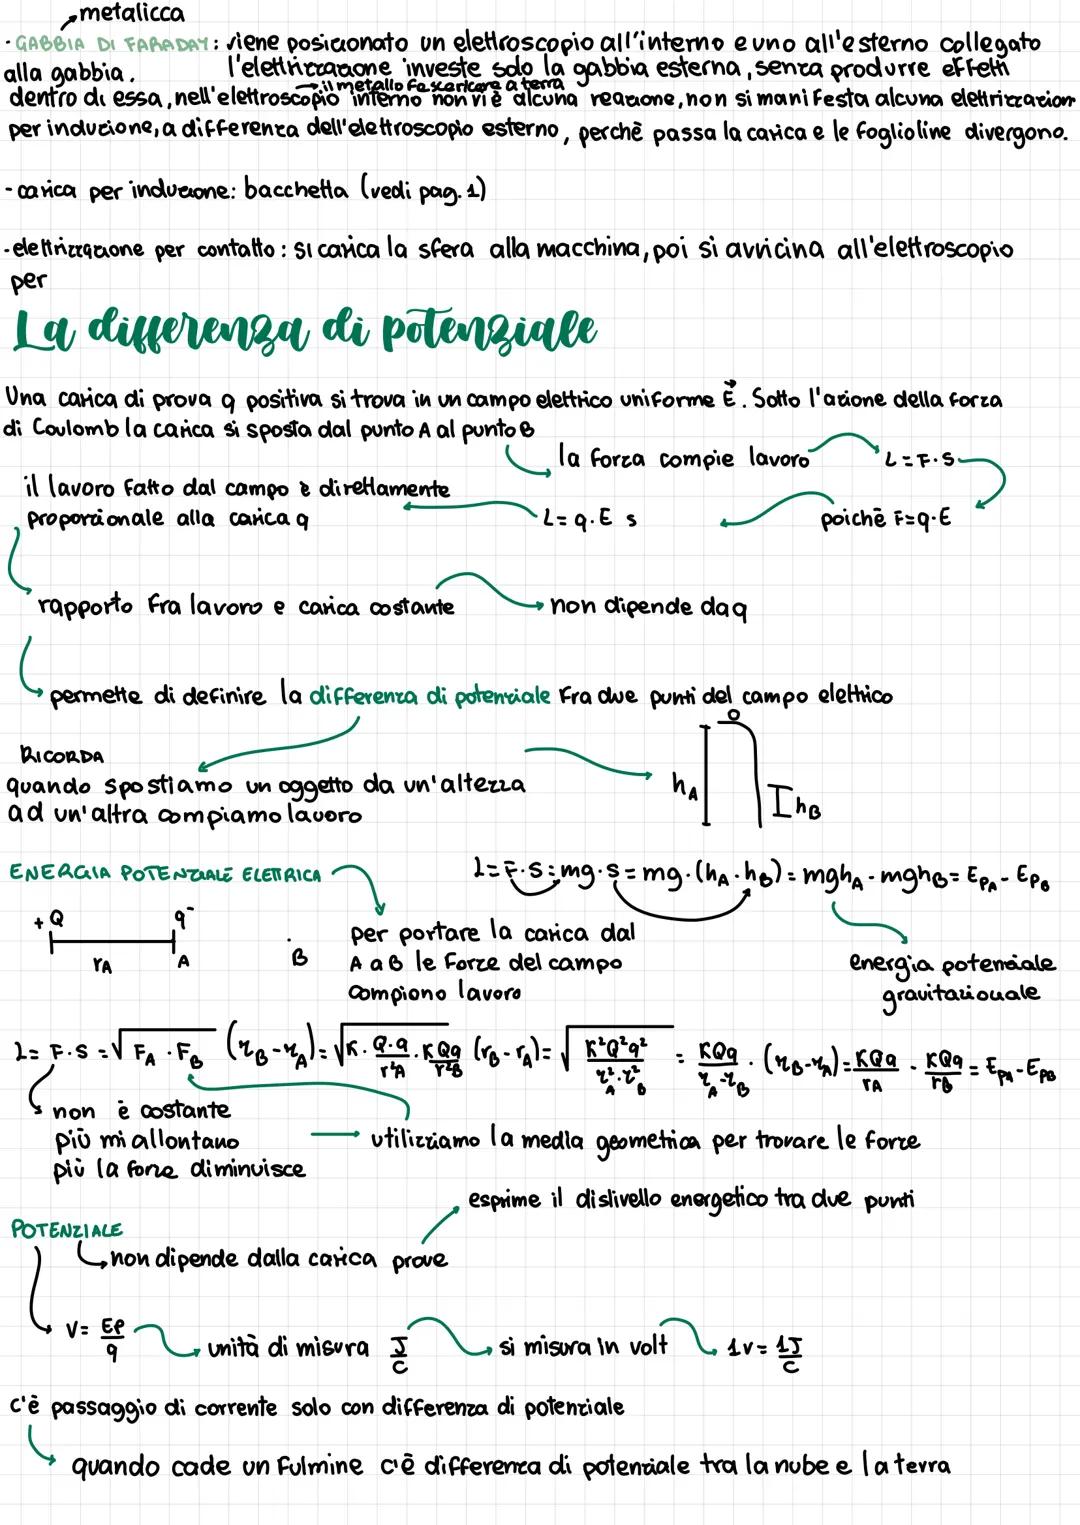 metalicca
· GABBIA DI FARADAY: viene posizionato un elettroscopio all'interno e uno all'esterno collegato
alla gabbia. l'elettrizzazione investe solo la gabbia esterna, senza produrre effetti
il metallo fa scaricare a terra
dentro di essa, nell'elettroscopio interno non vi è alcuna reazione, non si manifesta alcuna elettrizzazion
per induzione, a differenza dell'elettroscopio esterno, perchè passa la carica e le foglioline divergono.
- carica per induzione: bacchetta (vedi pag. 1)
- elettrizzazione per contatto: si carica la sfera alla macchina, poi si avvicina all'elettroscopio
per
La differenza di potenziale
Una carica di prova q positiva si trova in un campo elettrico uniforme E⃗. Sotto l'azione della forza
di Coulomb la carica si sposta dal punto A al punto B
la forza compie lavoro L = F·S
il lavoro fatto dal campo è direttamente
proporzionale alla carica q L = q·E s poichè F=q·E
rapporto fra lavoro e carica costante non dipende da q
permette di definire la differenza di potenziale fra due punti del campo elettrico
RICORDA
quando spostiamo un oggetto da un'altezza
ad un'altra compiamo lavoro
hA hB
ENERGIA POTENZIALE ELETTRICA L=F·S=mg·S=mg·(hA·hB)=mghA-mghB=EpA-EpB
+Q q⁻
rA A B
per portare la carica dal
A a B le forze del campo
compiono lavoro
energia potenziale
gravitazionale
L= F·S = √FA·FB (rB-rA)= √K·Q·q/r²A·KQq/r²B (rB-rA)= √K²Q²q²/r²A·r²B = KQq/rA-rB · (rB-rA)= KQq/rA - KQq/rB = EpA-EpB
non è costante
più mi allontano
più la forza diminuisce
utilizziamo la media geometrica per trovare le forze
esprime il dislivello energetico tra due punti
POTENZIALE
non dipende dalla carica prove
V= Ep/q unità di misura J/C si misura in volt 1v= 1J/C
c'è passaggio di corrente solo con differenza di potenziale
quando cade un fulmine c'è differenza di potenziale tra la nube e la terra